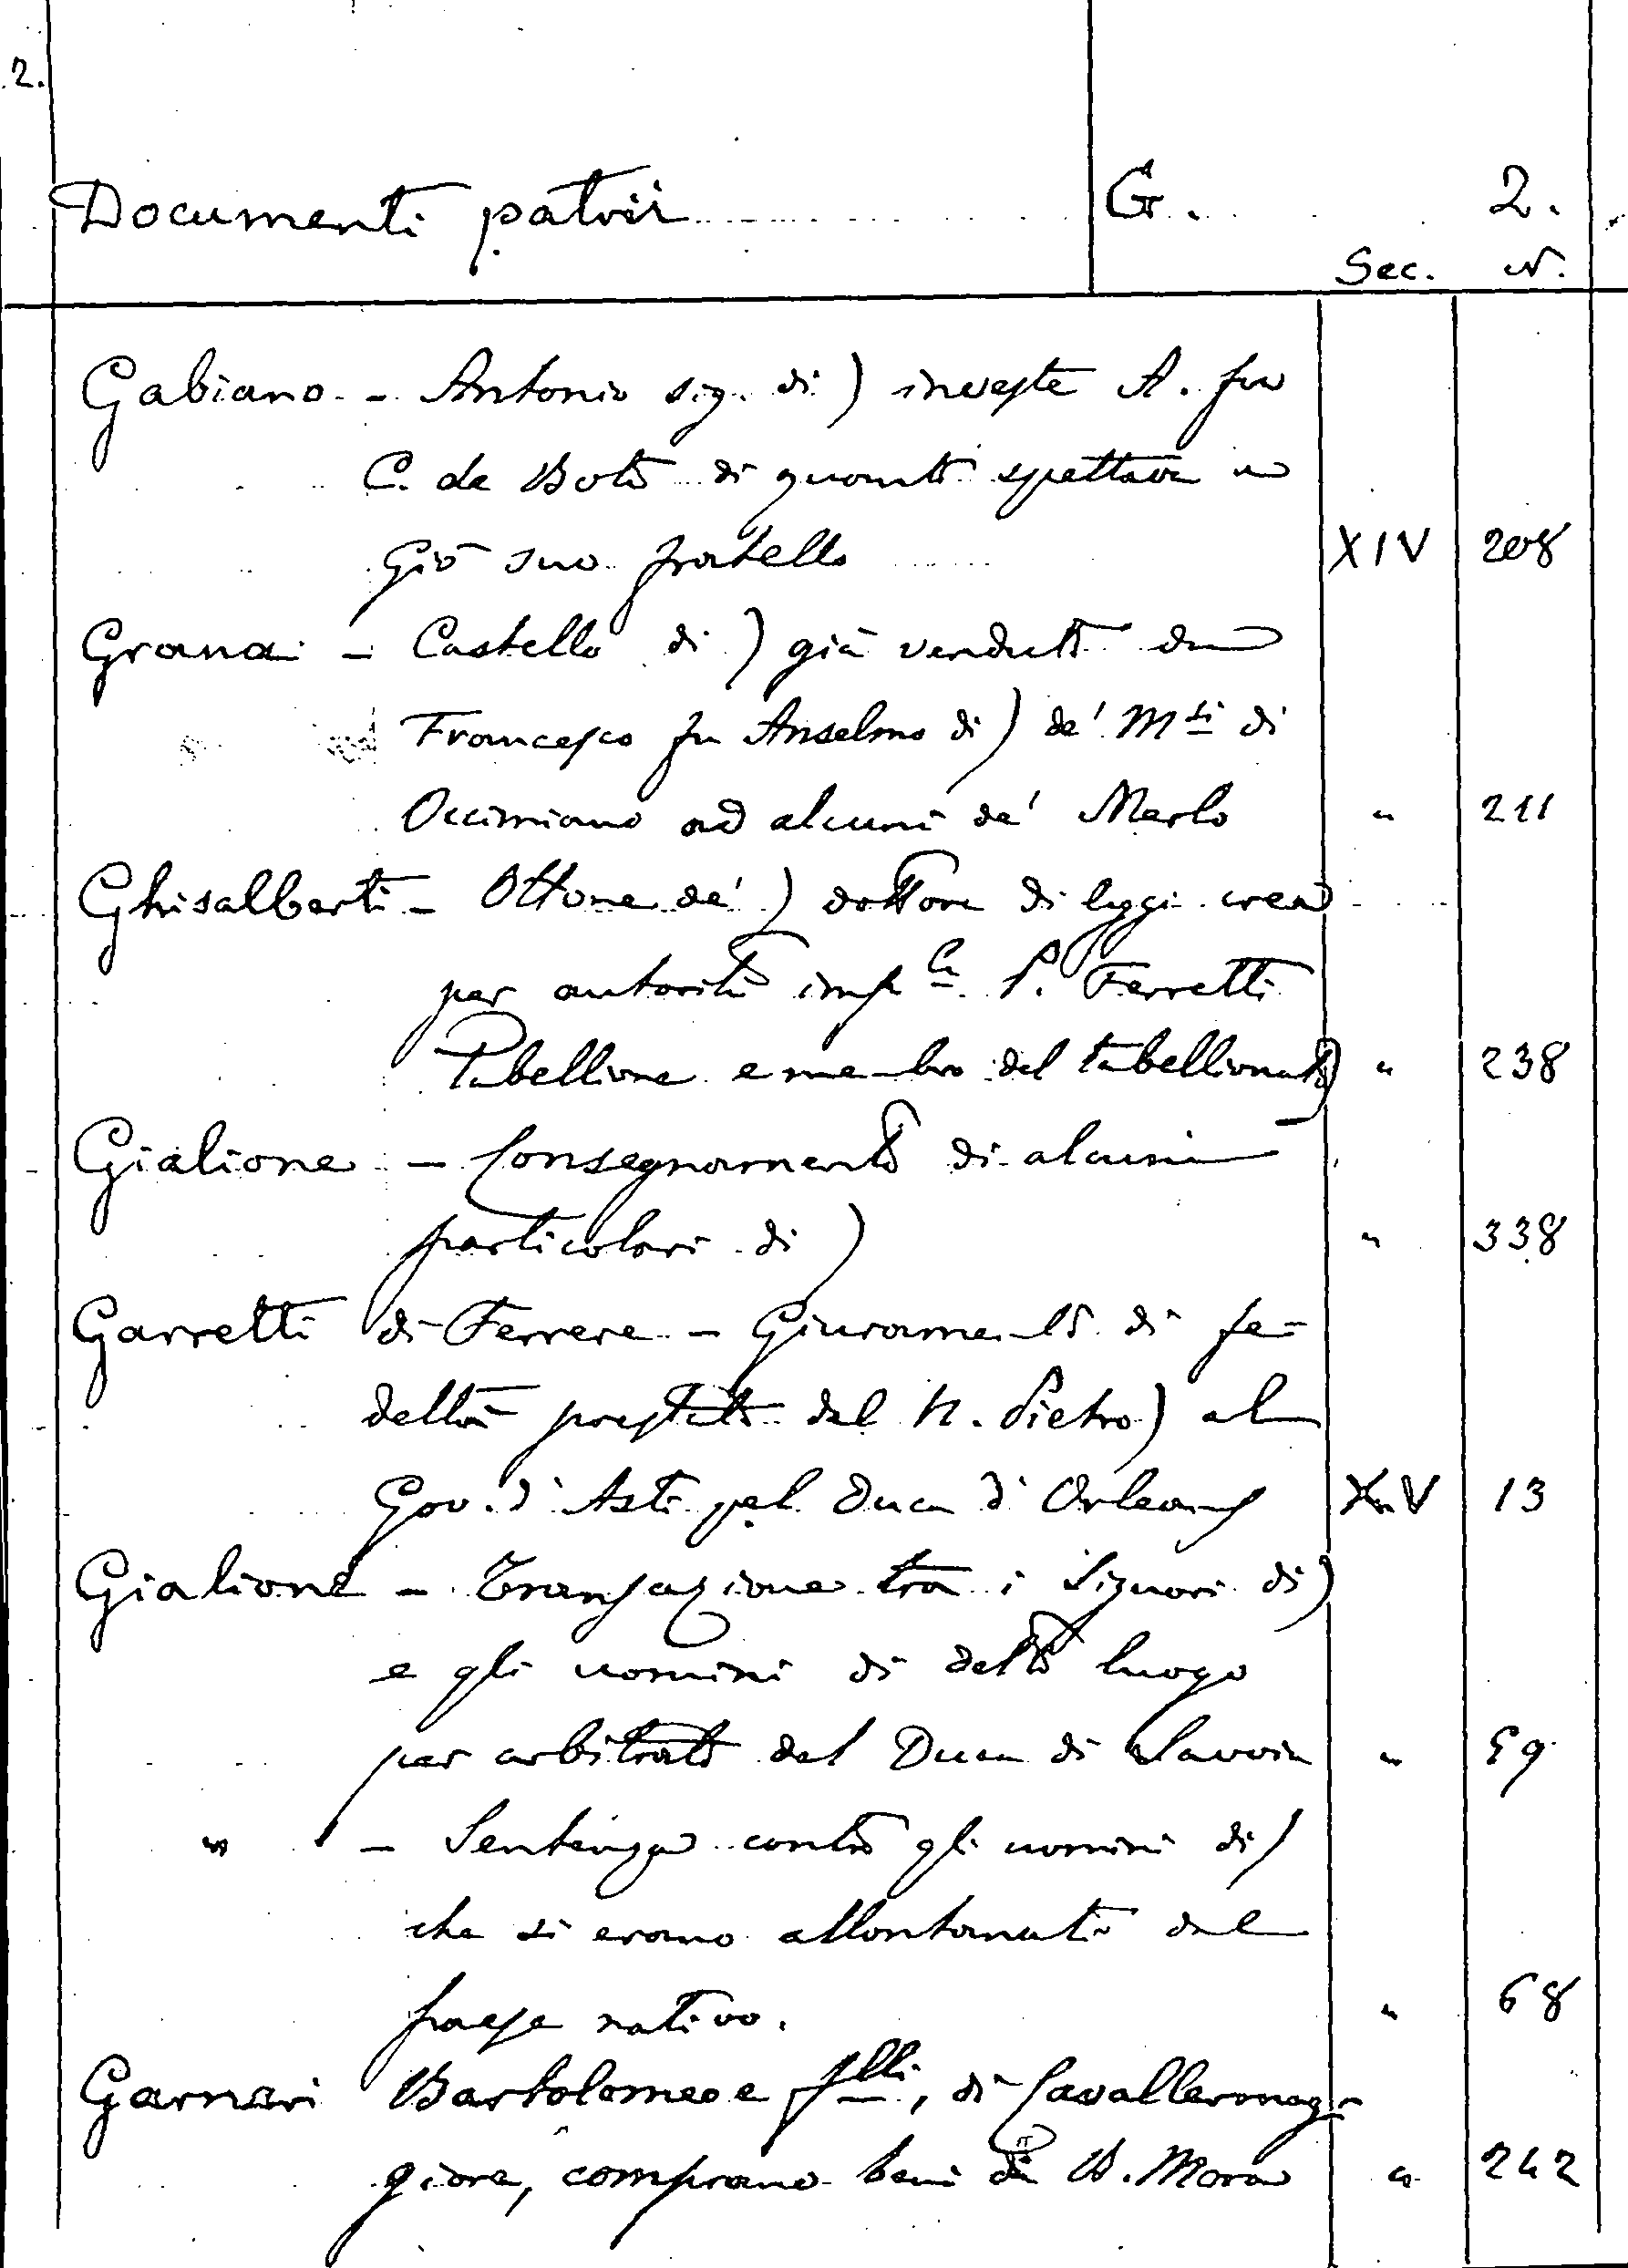 2.
Documenti patrii G. 2.
Sec. N.
Gabiano - Antonio sig. di) investe A. fu
C. de Boto di quanto spettava a
Giō suo fratello XIV 208
Grana - Castello di) già venduto da
Francesco fu Anselmo di) de' Msi di
Occimiano ad alcuni de' Merlo " 211
Ghisalberti - Ottone de') dottore di leggi crea
per autorità imple P. Ferretti
Tabellione e membro del tabellionato " 238
Gialione - Consegnamento di alcuni
particolari di) " 338
Garretti di Ferrere - Giuramento di fe-
deltà prestato dal N. Pietro) al
Gov. d'Asti pel Duca d'Orleans XV 13
Gialione - Transazione tra i Signori di)
e gli uomini di detto luogo
per arbitrato del Duca di Savoia " 59
" - Sentenza contro gli uomini di)
che si erano allontanati dal
paese nativo. " 68
Garnari Bartolomeo e flli, di Cavallermag-
giore, comprano beni da B. Mora " 242